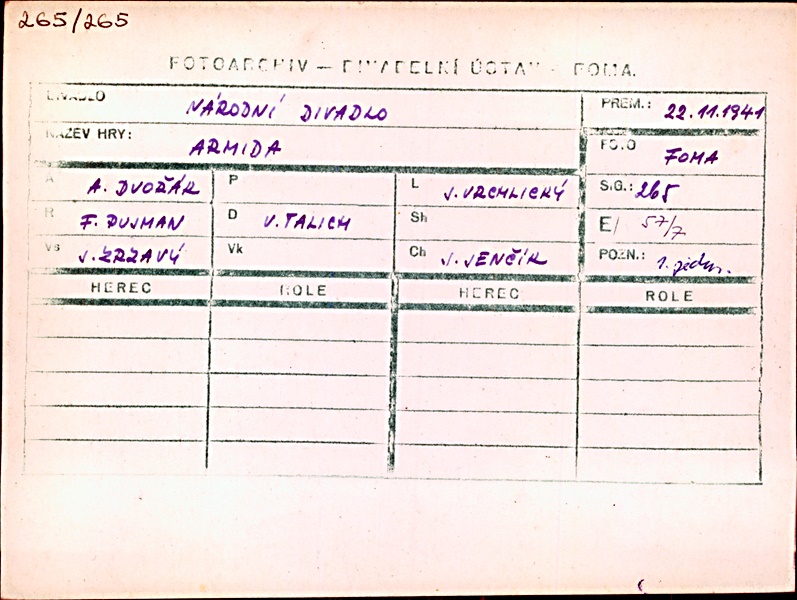 265/265
FOTOARCHIV — DIVADELNÍ ÚSTAV - FOMA.
DIVADLO NÁRODNÍ DIVADLO PREM.: 22.11.1941
NÁZEV HRY: ARMIDA FOTO FOMA
A A. DVOŘÁK P L J. VRCHLICKÝ SIG.: 265
R F. PUJMAN D V. TALICH Sh E/ 57/7
Vs J. ZRZAVÝ Vk Ch J. JENČÍK POZN.: 1. jedn.
HEREC ROLE HEREC ROLE